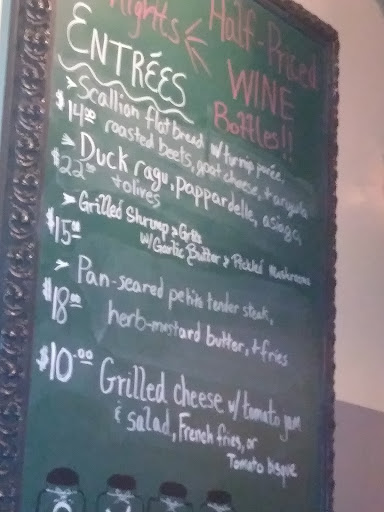 nights
Half-Priced
WINE
Bottles!!
ENTRÉES
> Scallion flatbread w/ turnip purée,
$14.00 roasted beets, goat cheese, + arugula
> Duck ragu, pappardelle, asiago,
$22.00 + olives
> Grilled Shrimp & Grits
$15.00 w/ Garlic Butter & Pickled Mushrooms
> Pan-seared petite tender steak,
$18.00 herb-mustard butter, + fries
$10.00 Grilled cheese w/ tomato jam
& salad, French fries, or
Tomato bisque